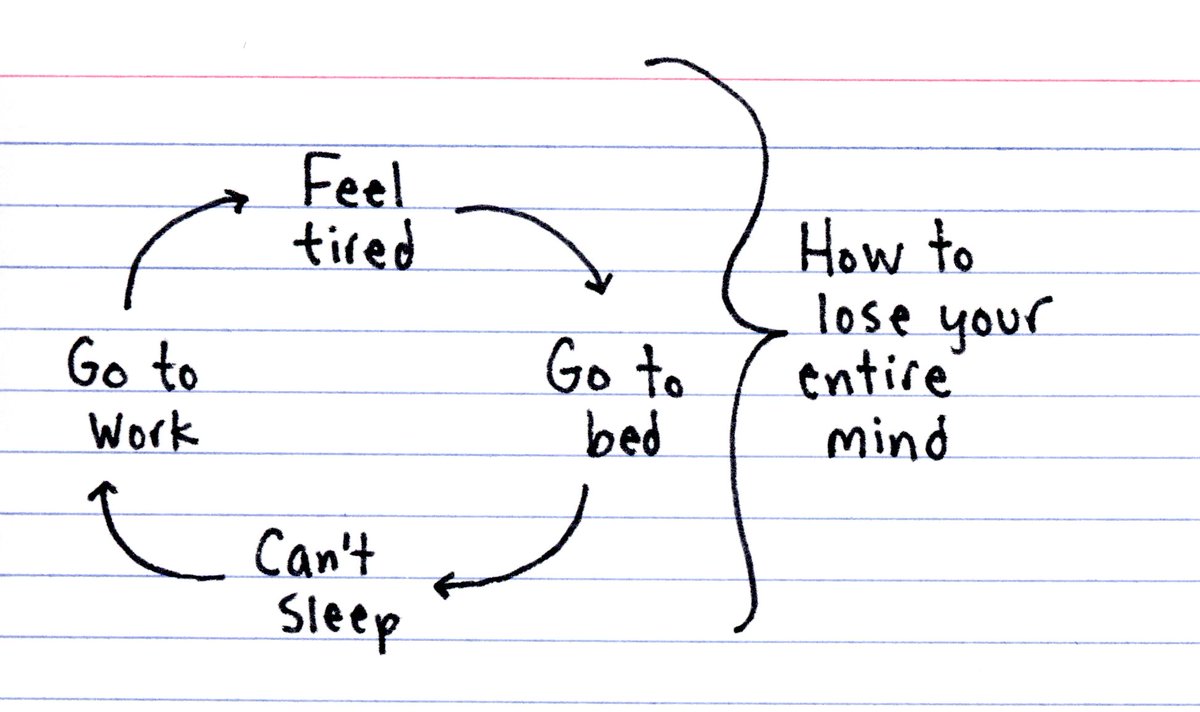 Feel
tired
Go to
bed
Can't
sleep
Go to
work
How to
lose your
entire
mind